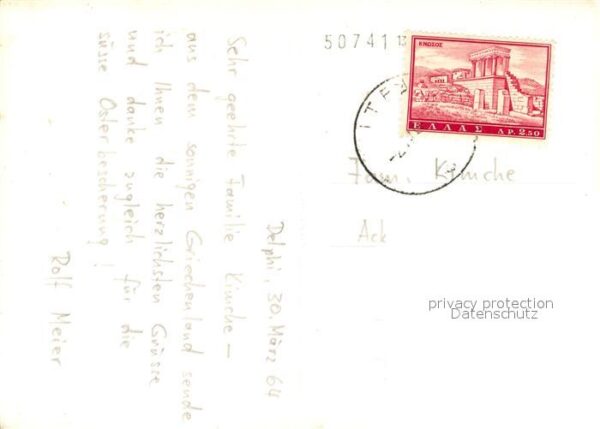 Delphi, 30. März 64
Sehr geehrte Familie Kimche –
aus dem sonnigen Griechenland sende
ich Ihnen die herzlichsten Grüsse
und danke zugleich für die
süsse Osterbescherung!
Rolf Meier
50741
ΚΝΩΣΟΣ
ΕΛΛΑΣ ΔΡ. 2.50
Fam. Kimche
Ack
privacy protection
Datenschutz